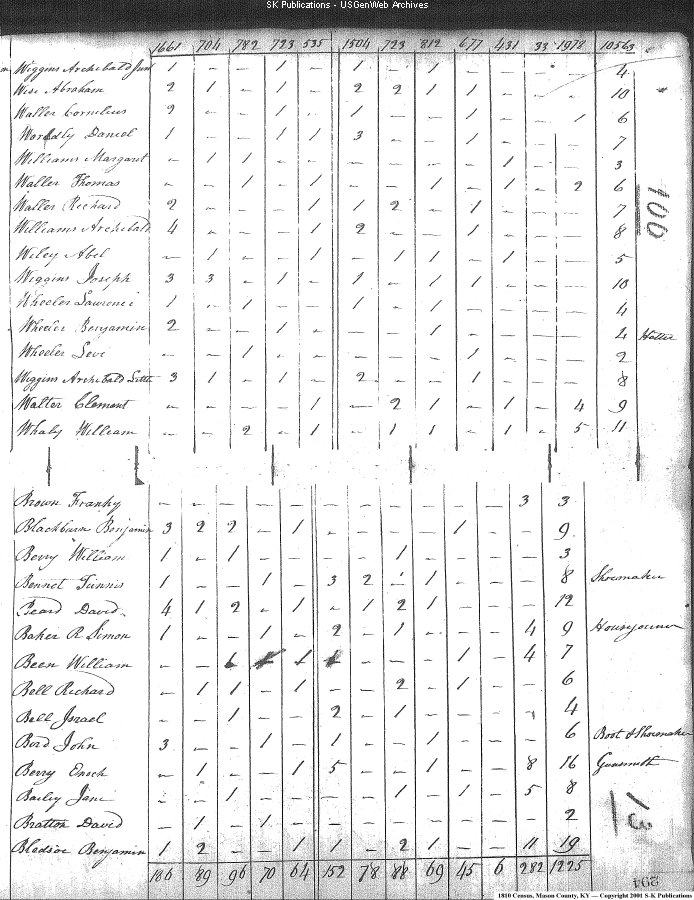 SK Publications - USGenWeb Archives
1661 704 782 723 535 1504 723 812 677 431 33 1978 10563
Wiggins Archibald Jun 1 - - 1 - 1 - 1 - - - - 4
Wise Abraham 2 1 - 1 - 2 2 1 1 - - - 10
Waller Cornelius 2 - - 1 - 1 - - 1 - - 1 6
Wordly Daniel 1 - - 1 1 3 - - 1 - - - 7
Williams Margaret - 1 1 - - - - - - 1 - - 3
Waller Thomas - - 1 - 1 - - 1 - 1 - 2 6
Waller Richard 2 - - - 1 1 2 - 1 - - - 7
Williams Archibald 4 - - - 1 2 - - 1 - - - 8
Wiley Abel - 1 - - 1 - 1 1 - 1 - - 5
Wiggins Joseph 3 3 - 1 - 1 - 1 1 - - - 10
Wheeler Lawrence 1 - 1 - - 1 - 1 - - - - 4
Wheeler Benjamin 2 - - 1 - - - 1 - - - - 4 Hatter
Wheeler Levi - - 1 - - - - - 1 - - - 2
Wiggins Archibald Little 3 1 - 1 - 2 - - 1 - - - 8
Walter Clement - - - - 1 - 2 1 - 1 - 4 9
Whaly William - - 2 - 1 - 1 1 - 1 - 5 11
100
Brown Franky - - - - - - - - - - 3 3
Blackburn Benjamin 3 2 2 - 1 - - - 1 - - 9
Berry William 1 - 1 - - - - 1 - - - 3
Bennet Tunnis 1 - - 1 - 3 2 - 1 - - 8 Shoemaker
Beard David 4 1 2 - 1 - 1 2 1 - - 12
Baker R Simon 1 - - 1 - 2 - 1 - - 4 9 Housejoiner
Been William - - 1 - 1 - - 1 - 4 7
Bell Richard - 1 1 - 1 - - 2 - 1 - - 6
Bell Israel - - 1 - - 2 - 1 - - - 4
Bord John 3 - - 1 - 1 - - 1 - - - 6 Boot & Shoemaker
Berry Enoch - 1 - - 1 5 - - 1 - - 8 16 Gunsmith
Bailey Jane - - 1 - - - - 1 - 1 - 5 8
Bratton David - 1 - 1 - - - - - - - - 2
Bledsoe Benjamin 1 2 - - 1 1 - 2 1 - - 11 19
13
186 89 96 70 64 152 78 88 69 45 6 282 1225
264
1810 Census, Mason County, KY — Copyright 2001 S-K Publications